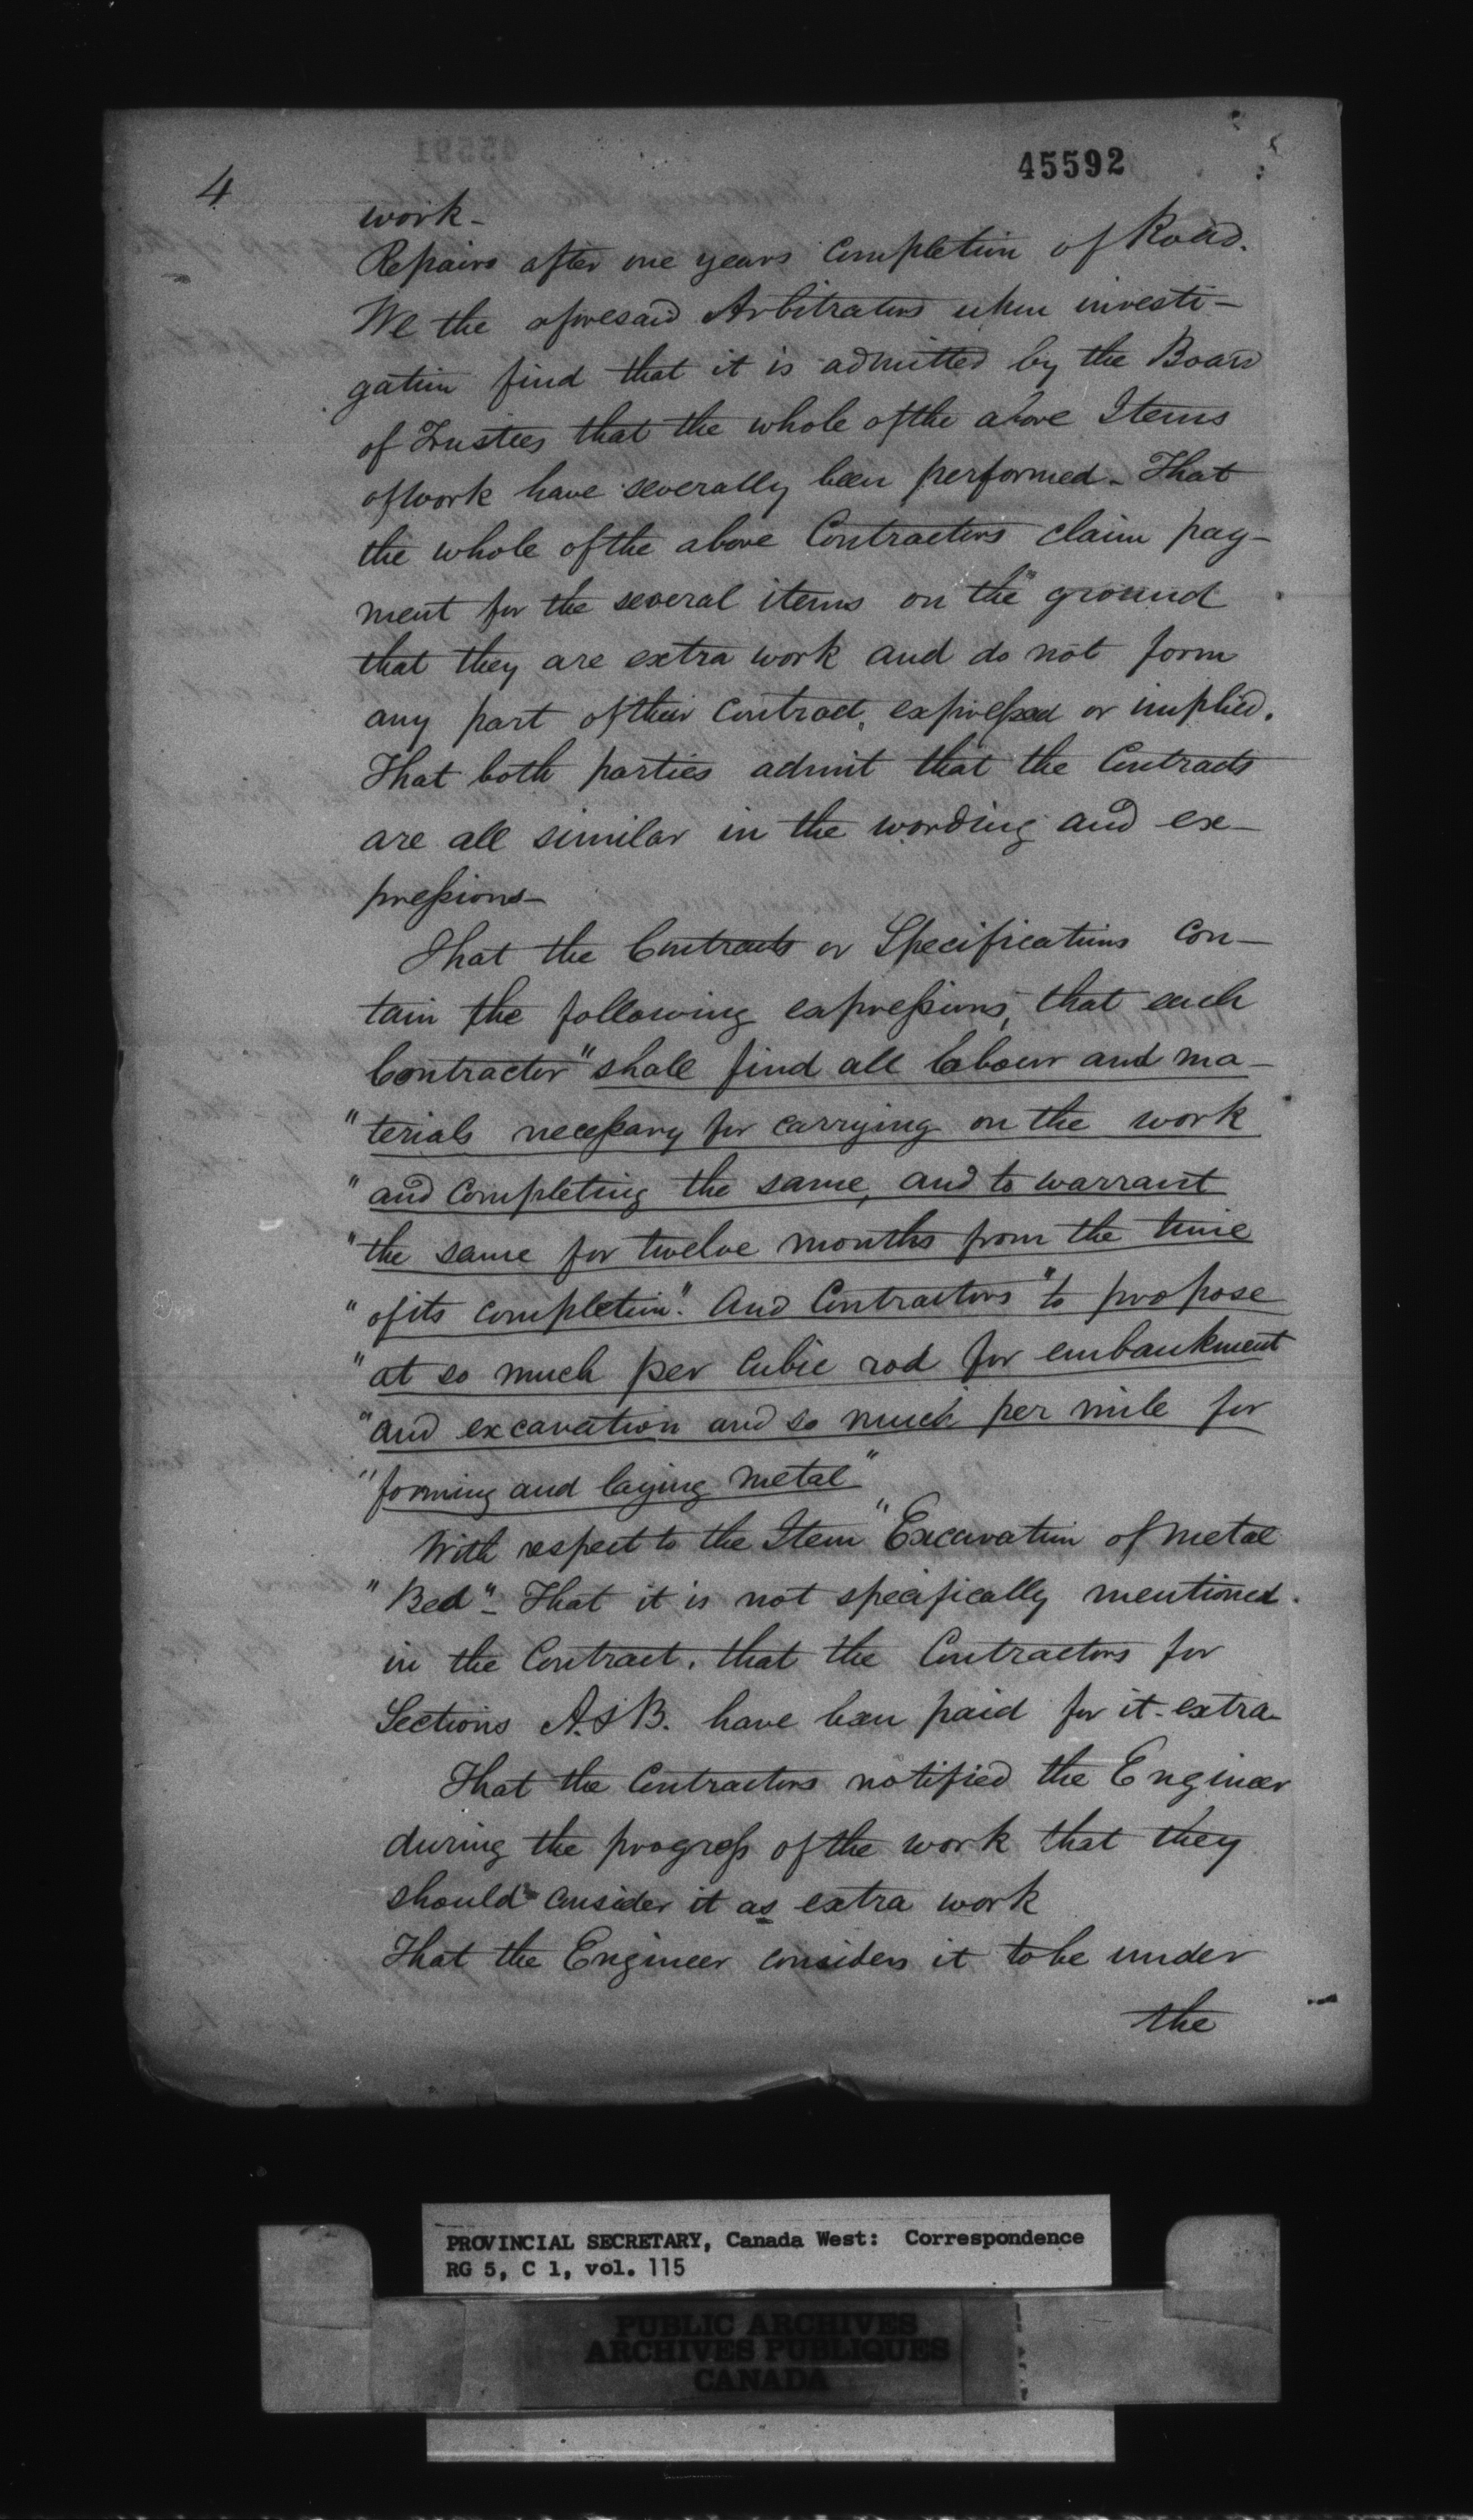 45592
4
work-
Repairs after one years Completion of Road.
We the aforesaid Arbitrators upon investi-
gation find that it is admitted by the Board
of Trustees that the whole of the above Items
of work have severally been performed. That
the whole of the above Contractors claim pay-
ment for the several items on the ground
that they are extra work and do not form
any part of their Contract, expressed or implied.
That both parties admit that the Contracts
are all similar in the wording and ex-
pressions-
That the Contracts or Specifications Con-
tain the following expressions, that each
Contractor "shall find all labour and ma-
"terials necessary for carrying on the work
"and Completing the same, and to warrant
"the same for twelve months from the time
"of its completion". And Contractors "to propose
"at so much per Cubic rod for embankment
"and excavation and so much per mile for
"forming and laying metal"
With respect to the Item "Excavation of metal
"Bed"- That it is not specifically mentioned
in the Contract. that the Contractors for
Sections A. & B. have been paid for it extra-
That the Contractors notified the Engineer
during the progress of the work that they
should consider it as extra work
That the Engineer considers it to be under
the
PROVINCIAL SECRETARY, Canada West: Correspondence
RG 5, C 1, vol. 115
PUBLIC ARCHIVES
ARCHIVES PUBLIQUES
CANADA